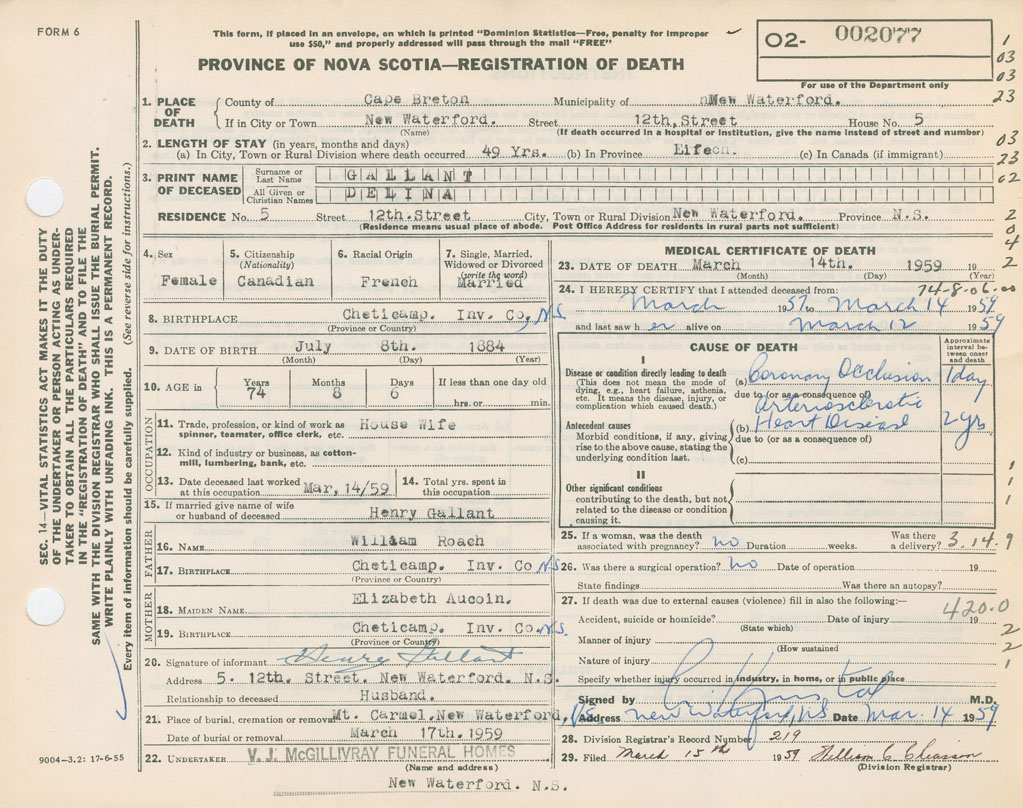 FORM 6
This form, if placed in an envelope, on which is printed "Dominion Statistics—Free, penalty for improper
use $50," and properly addressed will pass through the mail "FREE"
O2- 002077
For use of the Department only
PROVINCE OF NOVA SCOTIA—REGISTRATION OF DEATH
1
03
03
23
03
23
02
2
0
4
2
1. PLACE OF DEATH
County of Cape Breton Municipality of nMew Waterford.
If in City or Town New Waterford. Street 12th,Street House No. 5
(Name) (If death occurred in a hospital or institution, give the name instead of street and number)
2. LENGTH OF STAY (in years, months and days)
(a) In City, Town or Rural Division where death occurred 49 Yrs. (b) In Province (c) In Canada (if immigrant)
3. PRINT NAME OF DECEASED
Surname or Last Name GALLANT
All Given or Christian Names DELINA
RESIDENCE No. 5 Street 12th.Street City, Town or Rural Division New Waterford. Province N.S.
(Residence means usual place of abode. Post Office Address for residents in rural parts not sufficient)
4. Sex
Female
5. Citizenship (Nationality)
Canadian
6. Racial Origin
French
7. Single, Married, Widowed or Divorced (write the word)
Married
8. BIRTHPLACE Cheticamp. Inv. Co, N.S.
(Province or Country)
9. DATE OF BIRTH July 8th. 1884
(Month) (Day) (Year)
10. AGE in Years 74 Months 8 Days 6 If less than one day old
hrs. or min.
OCCUPATION
11. Trade, profession, or kind of work as House Wife
spinner, teamster, office clerk, etc.
12. Kind of industry or business, as cotton-
mill, lumbering, bank, etc.
13. Date deceased last worked at this occupation Mar, 14/59 14. Total yrs. spent in this occupation
15. If married give name of wife
or husband of deceased Henry Gallant
FATHER
16. NAME William Roach
17. BIRTHPLACE Cheticamp. Inv. Co N.S
(Province or Country)
MOTHER
18. MAIDEN NAME Elizabeth Aucoin.
19. BIRTHPLACE Cheticamp. Inv. Co. N.S.
(Province or Country)
20. Signature of informant Henry Gallant
Address 5. 12th. Street. New Waterford. N.S.
Relationship to deceased Husband.
21. Place of burial, cremation or removal Mt. Carmel,New Waterford,
Date of burial or removal March 17th.1959
22. UNDERTAKER V. J. McGILLIVRAY FUNERAL HOMES
(Name and address)
New Waterford. N.S.
MEDICAL CERTIFICATE OF DEATH
23. DATE OF DEATH March 14th. 1959 19
(Month) (Day) (Year)
24. I HEREBY CERTIFY that I attended deceased from: 74-8-06-00
March 1957 to March 14 1959
and last saw h er alive on March 12 1959
CAUSE OF DEATH
Approximate interval between onset and death
I
Disease or condition directly leading to death
(This does not mean the mode of dying, e.g., heart failure, asthenia, etc. It means the disease, injury, or complication which caused death.)
(a) Coronary Occlusion 1 day
due to (or as a consequence of)
Antecedent causes
Morbid conditions, if any, giving rise to the above cause, stating the underlying condition last.
Arteriosclerotic
(b) Heart Disease 2 yrs
due to (or as a consequence of)
(c)
II
Other significant conditions
contributing to the death, but not related to the disease or condition causing it.
1
1
1
25. If a woman, was the death associated with pregnancy? no Duration weeks. Was there a delivery? 3.14.9
26. Was there a surgical operation? no Date of operation 19
State findings Was there an autopsy?
27. If death was due to external causes (violence) fill in also the following:—
420.0
Accident, suicide or homicide? Date of injury 19
(State which)
2
2
1
Manner of injury
(How sustained
Nature of injury
Specify whether injury occurred in industry, in home, or in public place
Signed by M.D.
Address New Waterford, NS Date Mar. 14 1959
28. Division Registrar's Record Number 219
29. Filed March 15th 1959 William C
(Division Registrar)
SEC. 14—VITAL STATISTICS ACT MAKES IT THE DUTY
OF THE UNDERTAKER OR PERSON ACTING AS UNDER-
TAKER TO OBTAIN ALL THE PARTICULARS REQUIRED
IN THE "REGISTRATION OF DEATH" AND TO FILE THE
SAME WITH THE DIVISION REGISTRAR WHO SHALL ISSUE THE BURIAL PERMIT.
WRITE PLAINLY WITH UNFADING INK. THIS IS A PERMANENT RECORD.
Every item of information should be carefully supplied. (See reverse side for instructions.)
9004—3.2: 17-6-55